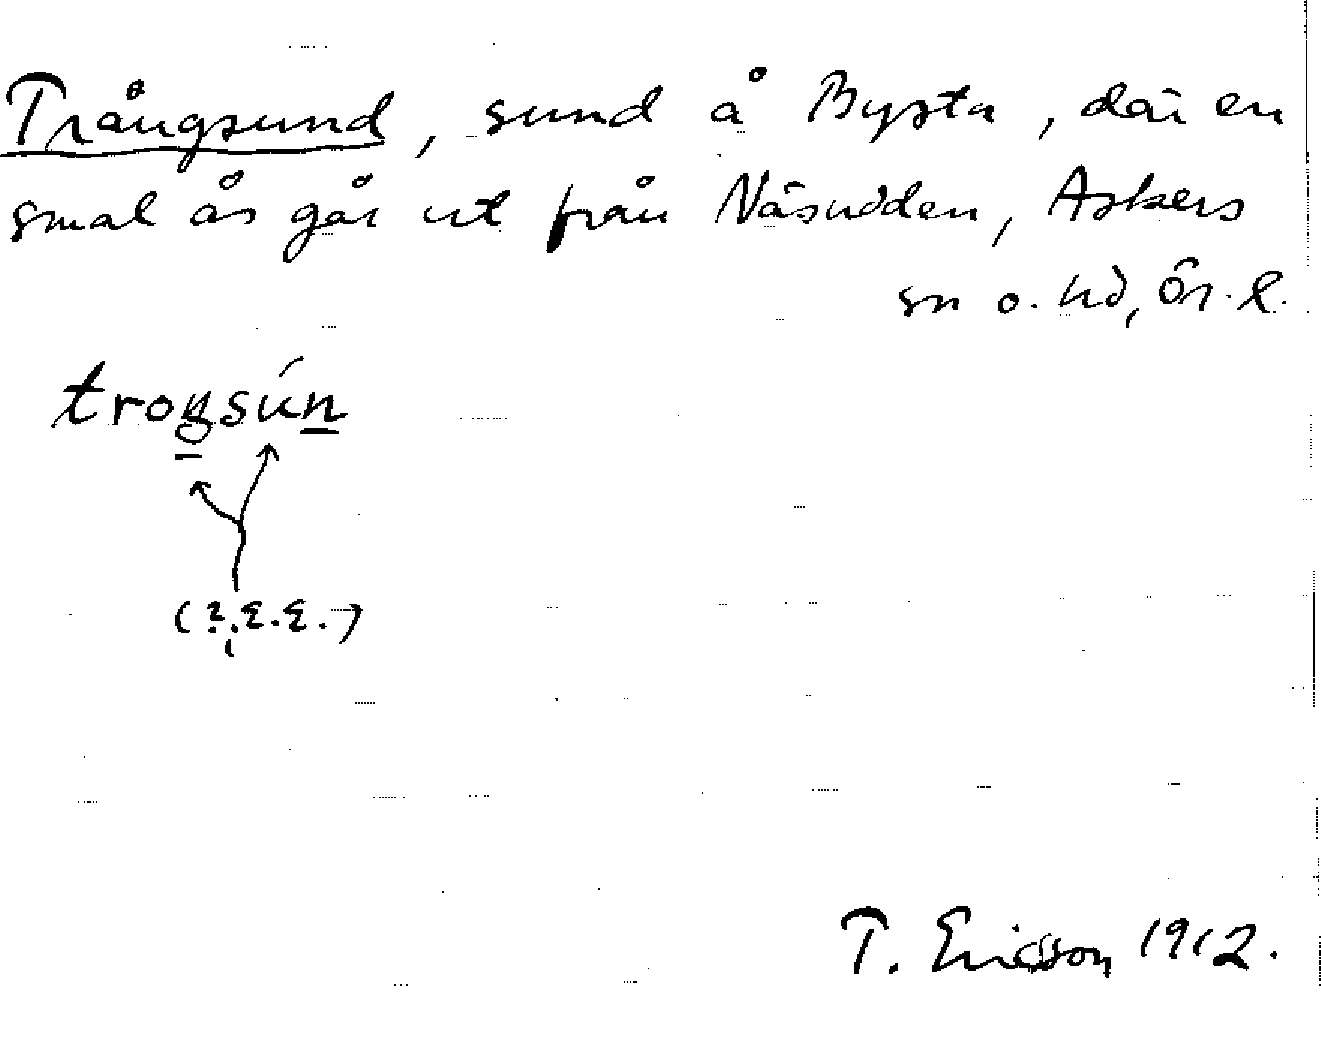 Trångsund, sund å Bysta, där en
smal ås går ut från Näsudden, Askers
sn o. hd, Ör. l.
trogsún
(?, E.E.)
T. Ericsson 1912.